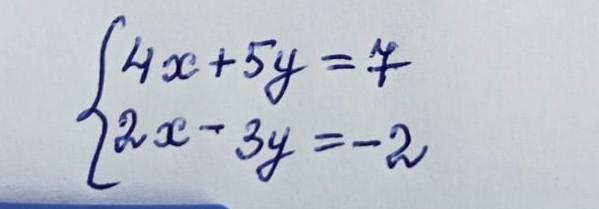 4x+5y=7
2x-3y=-2